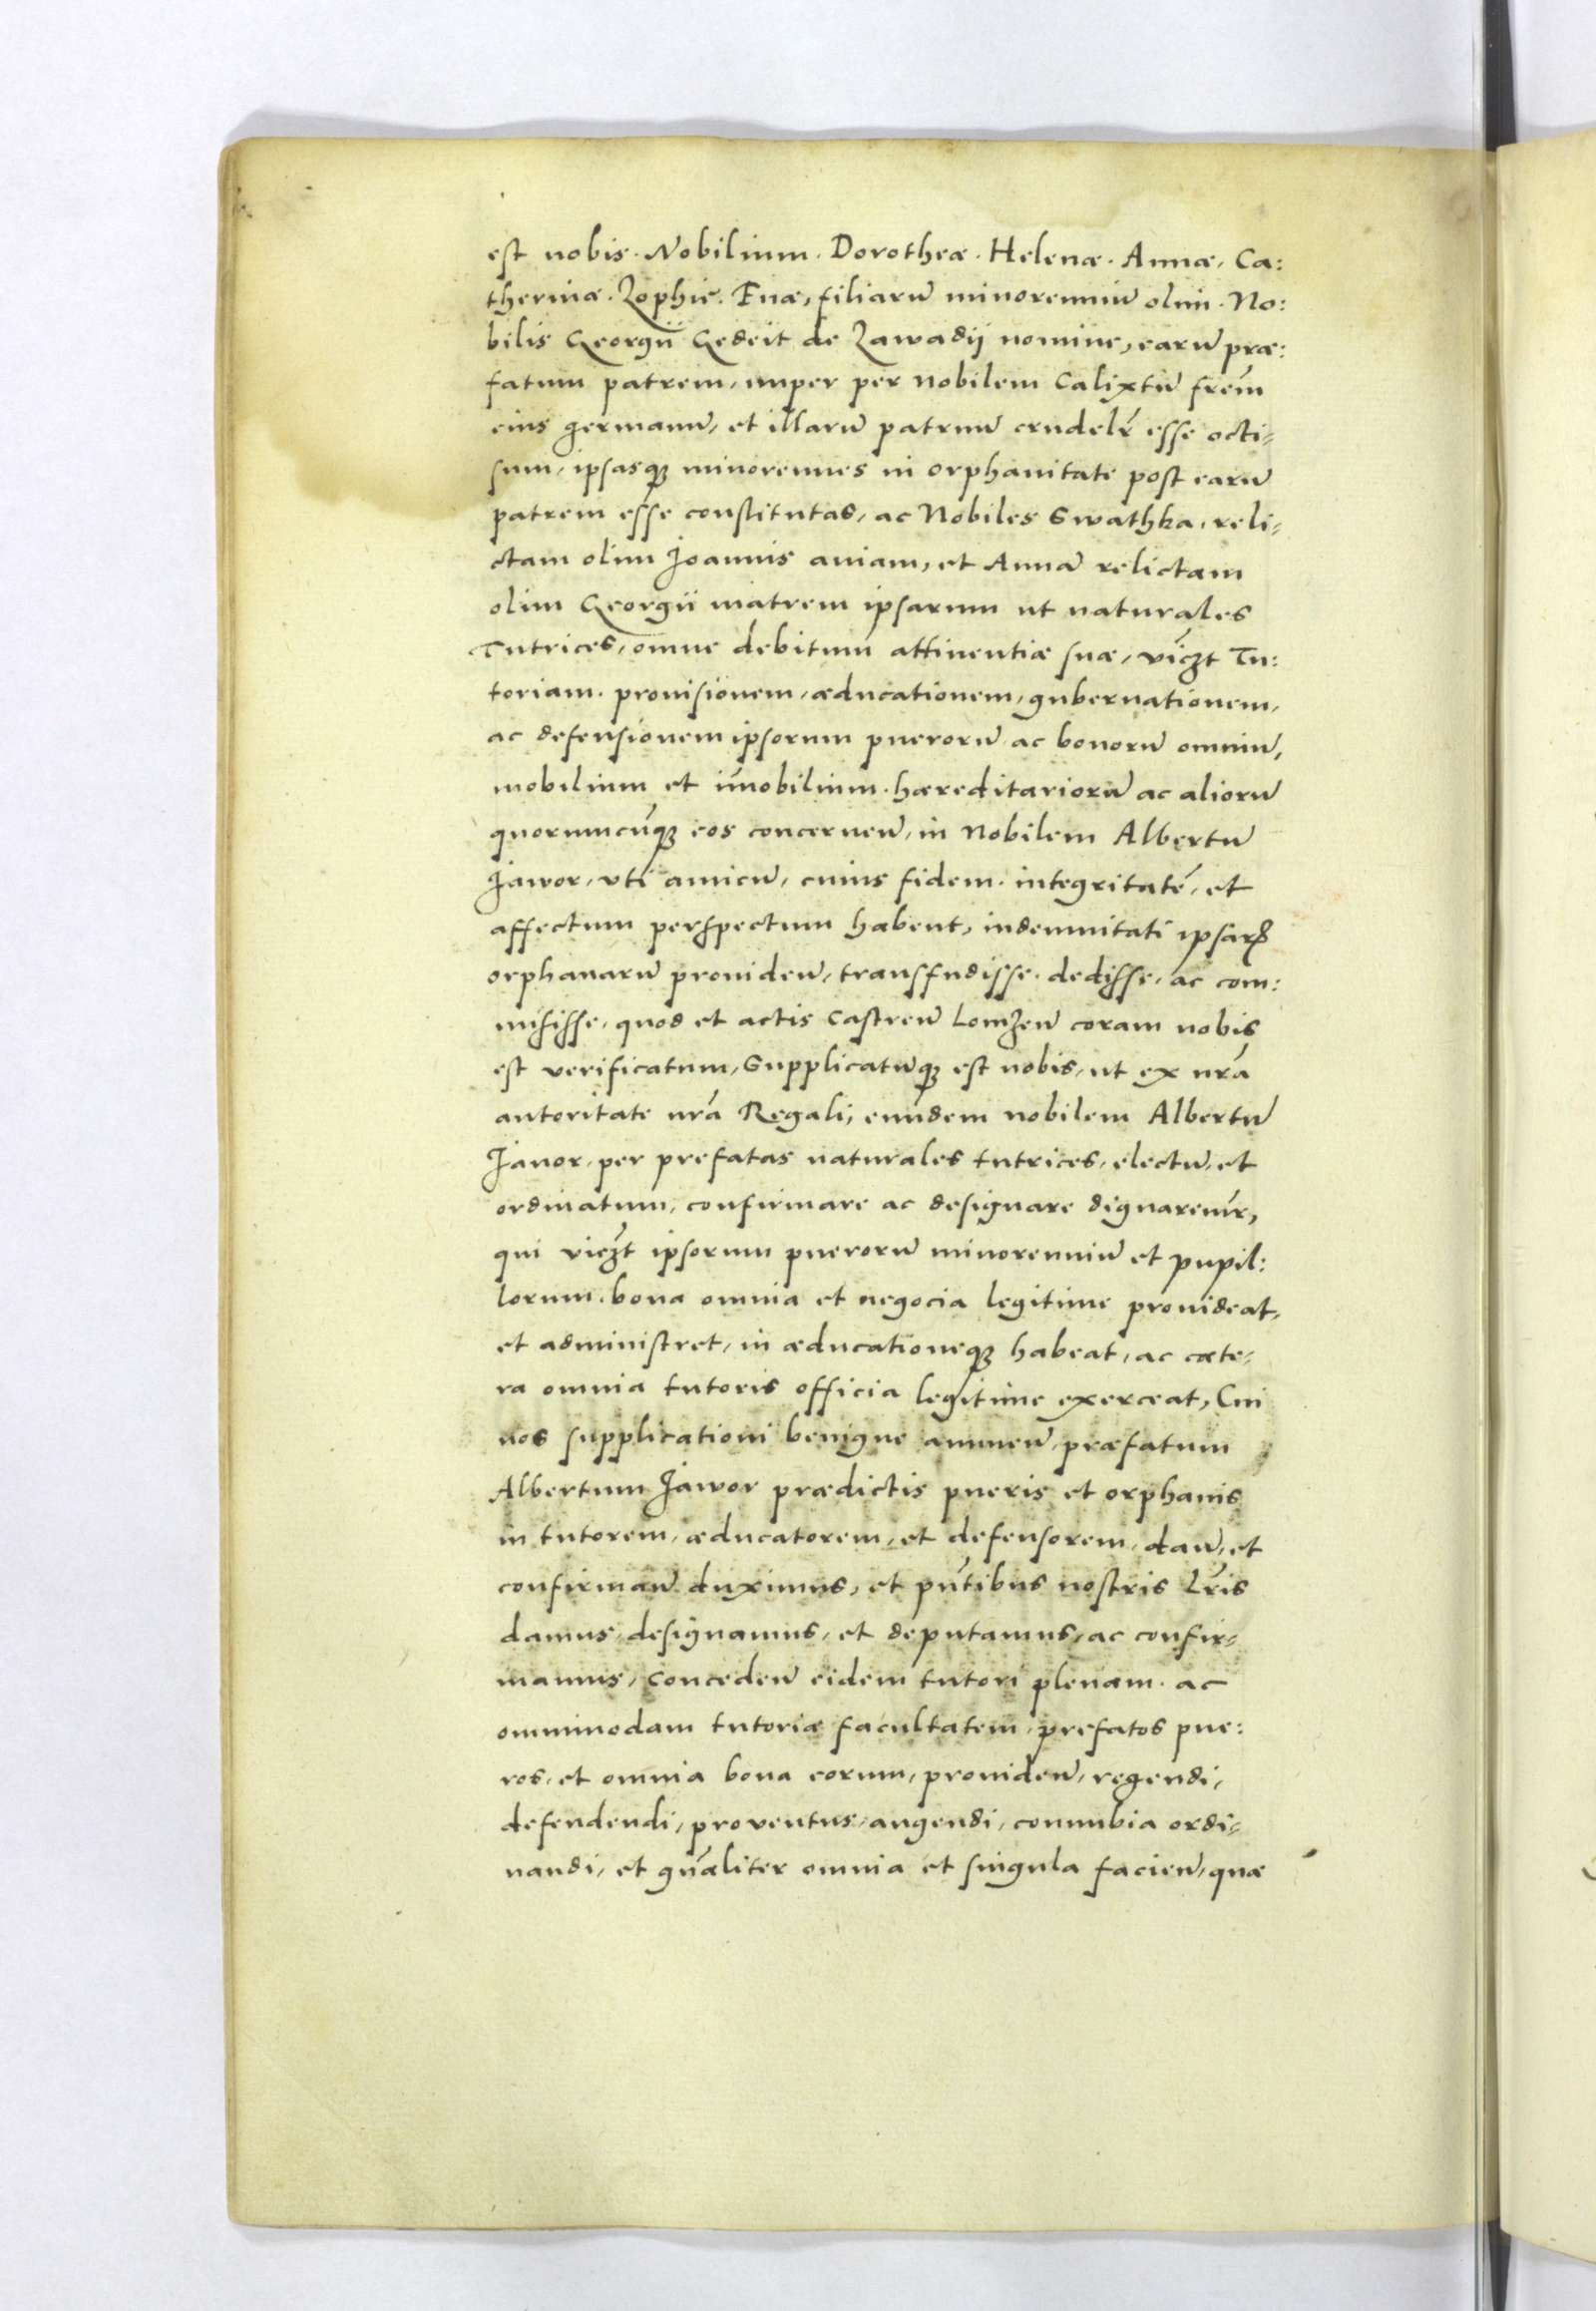 est nobis. Nobilium. Dorotheæ. Helenæ. Annæ, Ca:
therinæ. Zophię. Euæ, filiarū minorenniū olim. No:
bilis Georgii Gedeit de Zawadij nomine, earū præ:
fatum patrem, nuper per nobilem Calixtū frēm
eius germanū, et illarū patruū crudelr̄ esse occi-
sum, ipsasqꝫ minorennes in orphanitate post earū
patrem esse constitutas, ac Nobiles Swathka, reli-
ctam olim Joannis auiam, et Annā relictam
olim Georgii matrem ipsarum ut naturales
Tutrices, omne debitum attinentiæ suæ, vicꝫt Tu:
toriam. prouisionem, æducationem, gubernationem,
ac defensionem ipsorum puerorū ac bonorū omniū,
mobilium et im̄obilium. hæreditariorū ac aliorū
quorumcūqꝫ eos concernen̄, in Nobilem Albertū
Jawor, vti amicū, cuius fidem. integritatē, et
affectum perspectum habent, indemnitati ipsarꝝ
orphanarū prouiden̄, transfudisse. dedisse, ac com:
misisse, quod et actis Castren̄ Lomzen̄ coram nobis
est verificatum, Supplicatūqꝫ est nobis, ut ex nrā
autoritate nrā Regali, eundem nobilem Albertū
Jauor, per prefatas naturales tutrices, electū, et
ordinatum, confirmare ac designare dignaremr̄,
qui vicꝫt ipsorum puerorū minorenniū et pupil:
lorum. bona omnia et negocia legitime prouideat,
et administret, in æducationeqꝫ habeat, ac cæte-
ra omnia tutoris officia legitime exerceat, Cui
nos supplicationi benigne annuen̄, præfatum
Albertum Jawor prædictis pueris et orphanis
in tutorem, æducatorem, et defensorem, dan̄, et
confirman̄ duximus, et pn̄tibus nostris lr̄is
damus, designamus, et deputamus, ac confir-
mamus, Conceden̄ eidem tutori plenam. ac
omnimodam tutoriæ facultatem, prefatos pue:
ros, et omnia bona eorum, prouiden̄, regendi,
defendendi, proventus, augendi, connubia ordi-
nandi, et gn̄aliter omnia et singula facien̄, quæ